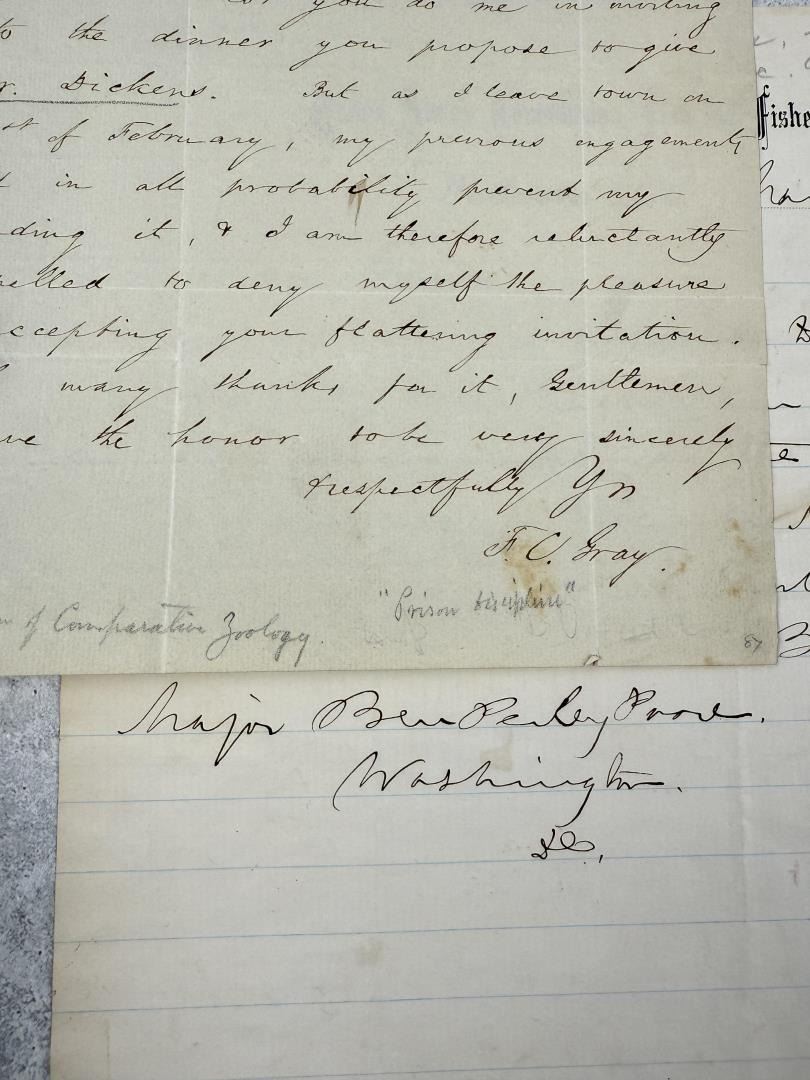 you do me in inviting
to the dinner you propose to give
r. Dickens. But as I leave town on
st of February, my previous engagements
in all probability prevent my
ding it, & I am therefore reluctantly
pelled to deny myself the pleasure
ccepting your flattering invitation.
many thanks for it, Gentlemen,
ve the honor to be very sincerely
& respectfully Yrs
F. C. Gray.
of Comparative Zoology.
"Prison discipline"
87
Fishe
Major Ben Perley Poore.
Washington.
DC,